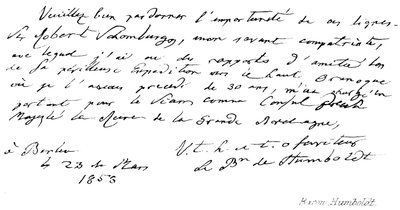 Veuillez bien pardonner l'importunité de ces lignes.
Sir Robert Schomburgk, mon savant compatriote,
avec lequel j'ai eu des rapports d'amitié lors
de sa périlleuse Expédition vers le haut
où je l'avais précédé de 30 ans, m'a chargé en
partant pour le Siam comme Consul
Majesté la Reine de la Grande Bretagne,
à Berlin
le 23 Mars
1858
V. t. h. et t. o
Le Bn de Humboldt
Baron Humboldt.